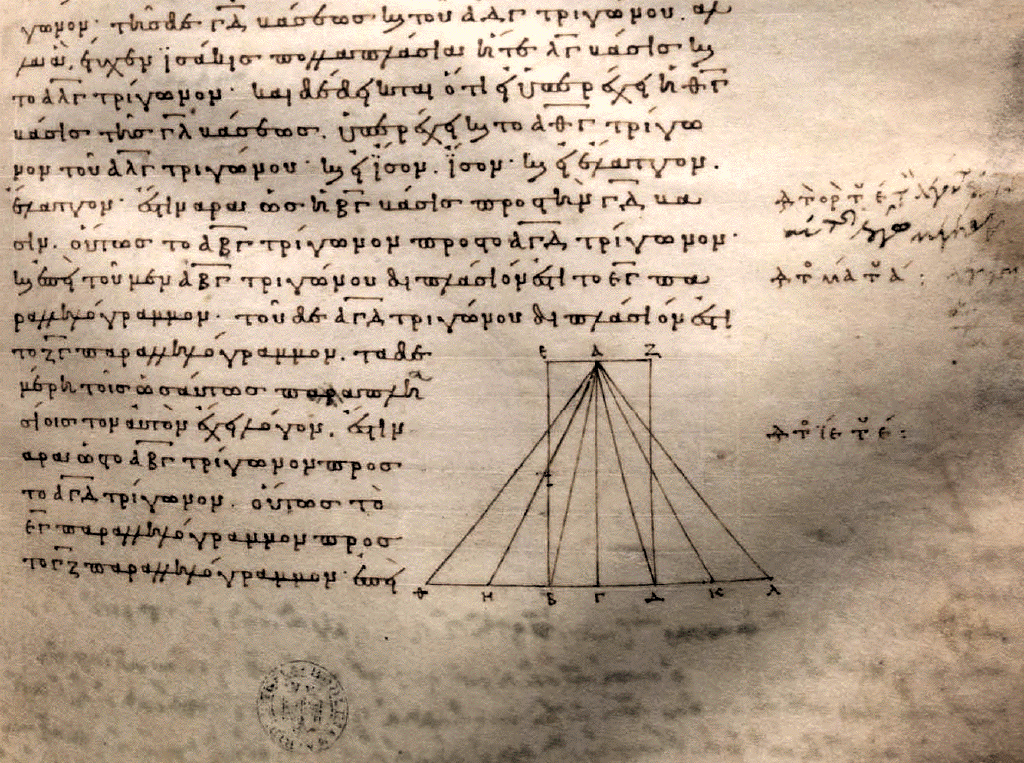 γωνον· τῆς δὲ ΓΔ βάσεως καὶ τοῦ ΑΔΓ τριγώνου. ἄλ
λα, ἔτυχεν ἰσάκις πολλαπλάσια ἥ τε ΛΓ βάσις καὶ
τὸ ΑΛΓ τρίγωνον· καὶ δέδεικται ὅτι εἰ ὑπερέχει ἡ ΘΓ
βάσις τῆς ΓΛ βάσεως, ὑπερέχει καὶ τὸ ΑΘΓ τρίγω
νον τοῦ ΑΛΓ τριγώνου· καὶ εἰ ἴσον, ἴσον· καὶ εἰ ἔλαττον,
ἔλαττον· ἔστιν ἄρα ὡς ἡ ΒΓ βάσις πρὸς τὴν ΓΔ βά
σιν, οὕτως τὸ ΑΒΓ τρίγωνον πρὸς τὸ ΑΓΔ τρίγωνον·
καὶ ἐπεὶ τοῦ μὲν ΑΒΓ τριγώνου διπλάσιόν ἐστι τὸ ΕΓ πα
ραλληλόγραμμον· τοῦ δὲ ΑΓΔ τριγώνου διπλάσιόν ἐστι
τὸ ΖΓ παραλληλόγραμμον. τὰ δὲ
μέρη τοῖς ὡσαύτως παραπλη
σίοις τὸν αὐτὸν ἔχει λόγον. ἔστιν
ἄρα ὡς τὸ ΑΒΓ τρίγωνον πρὸς
τὸ ΑΓΔ τρίγωνον. οὕτως τὸ
ΕΓ παραλληλόγραμμον πρὸς
τὸ ΓΖ παραλληλόγραμμον· ἐπεὶ
Ε Α Ζ
Θ Η Β Γ Δ Κ Λ